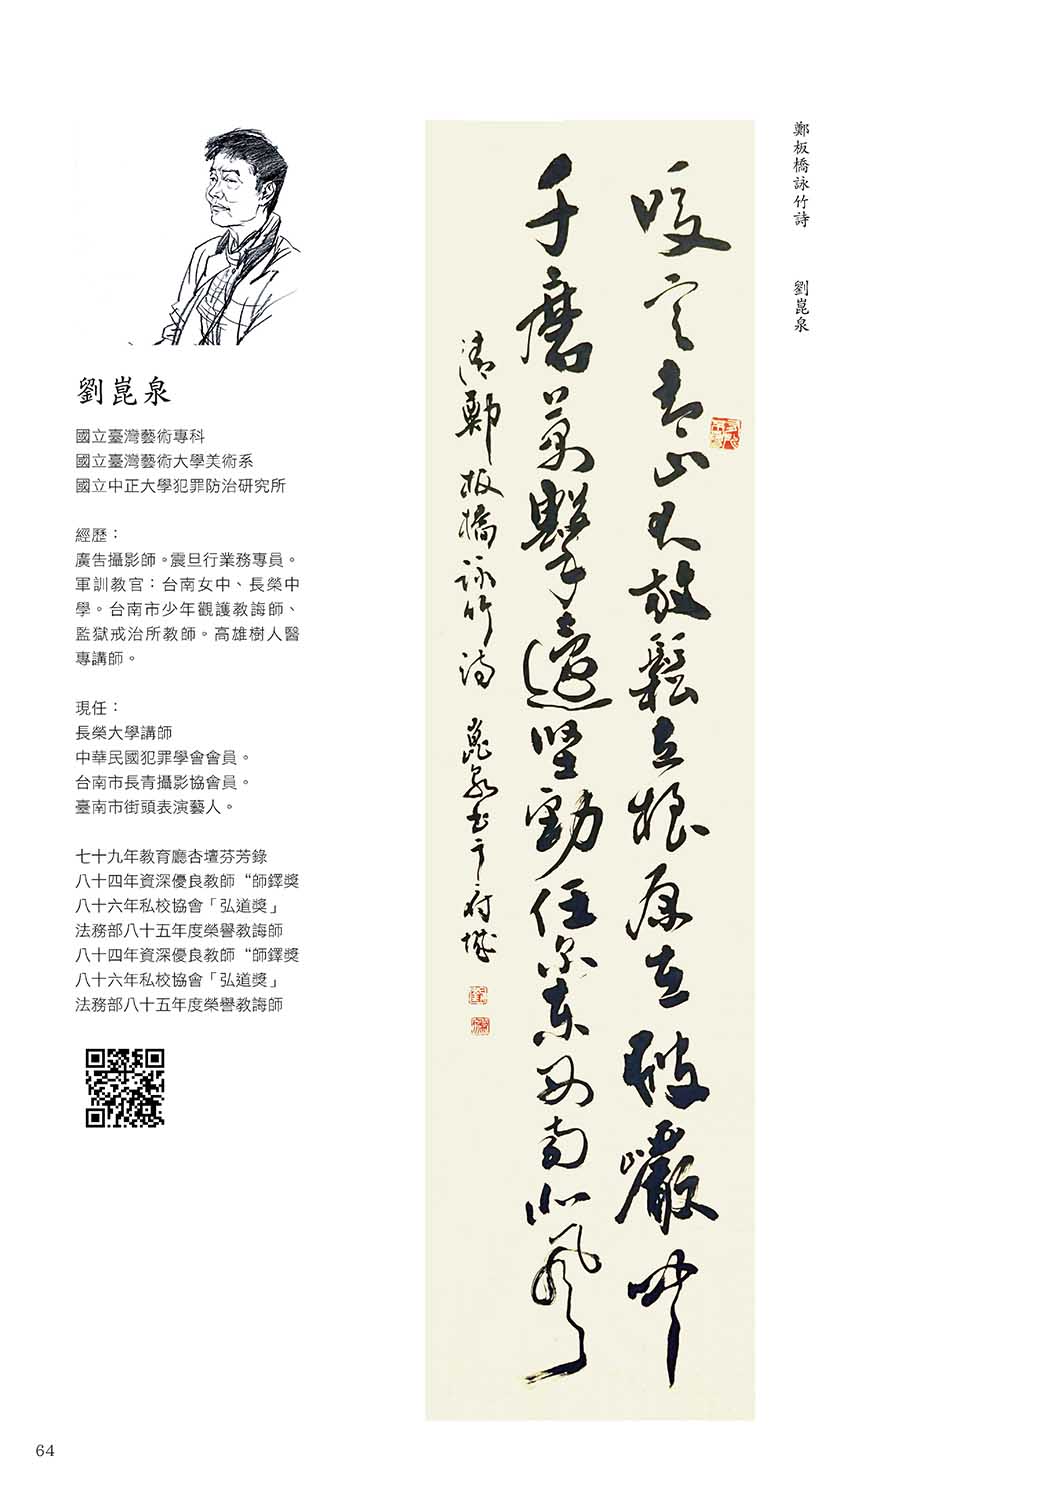 劉崑泉
國立臺灣藝術專科
國立臺灣藝術大學美術系
國立中正大學犯罪防治研究所
經歷：
廣告攝影師。震旦行業務專員。
軍訓教官：台南女中、長榮中
學。台南市少年觀護教誨師、
監獄戒治所教師。高雄樹人醫
專講師。
現任：
長榮大學講師
中華民國犯罪學會會員。
台南市長青攝影協會員。
臺南市街頭表演藝人。
七十九年教育廳杏壇芬芳錄
八十四年資深優良教師“師鐸獎
八十六年私校協會「弘道獎」
法務部八十五年度榮譽教誨師
八十四年資深優良教師“師鐸獎
八十六年私校協會「弘道獎」
法務部八十五年度榮譽教誨師
鄭板橋詠竹詩 劉崑泉
咬定青山不放鬆立根原在破巖中
千磨萬擊還堅勁任尔东西南北風
清鄭板橋詠竹詩 崑泉書于府城
64